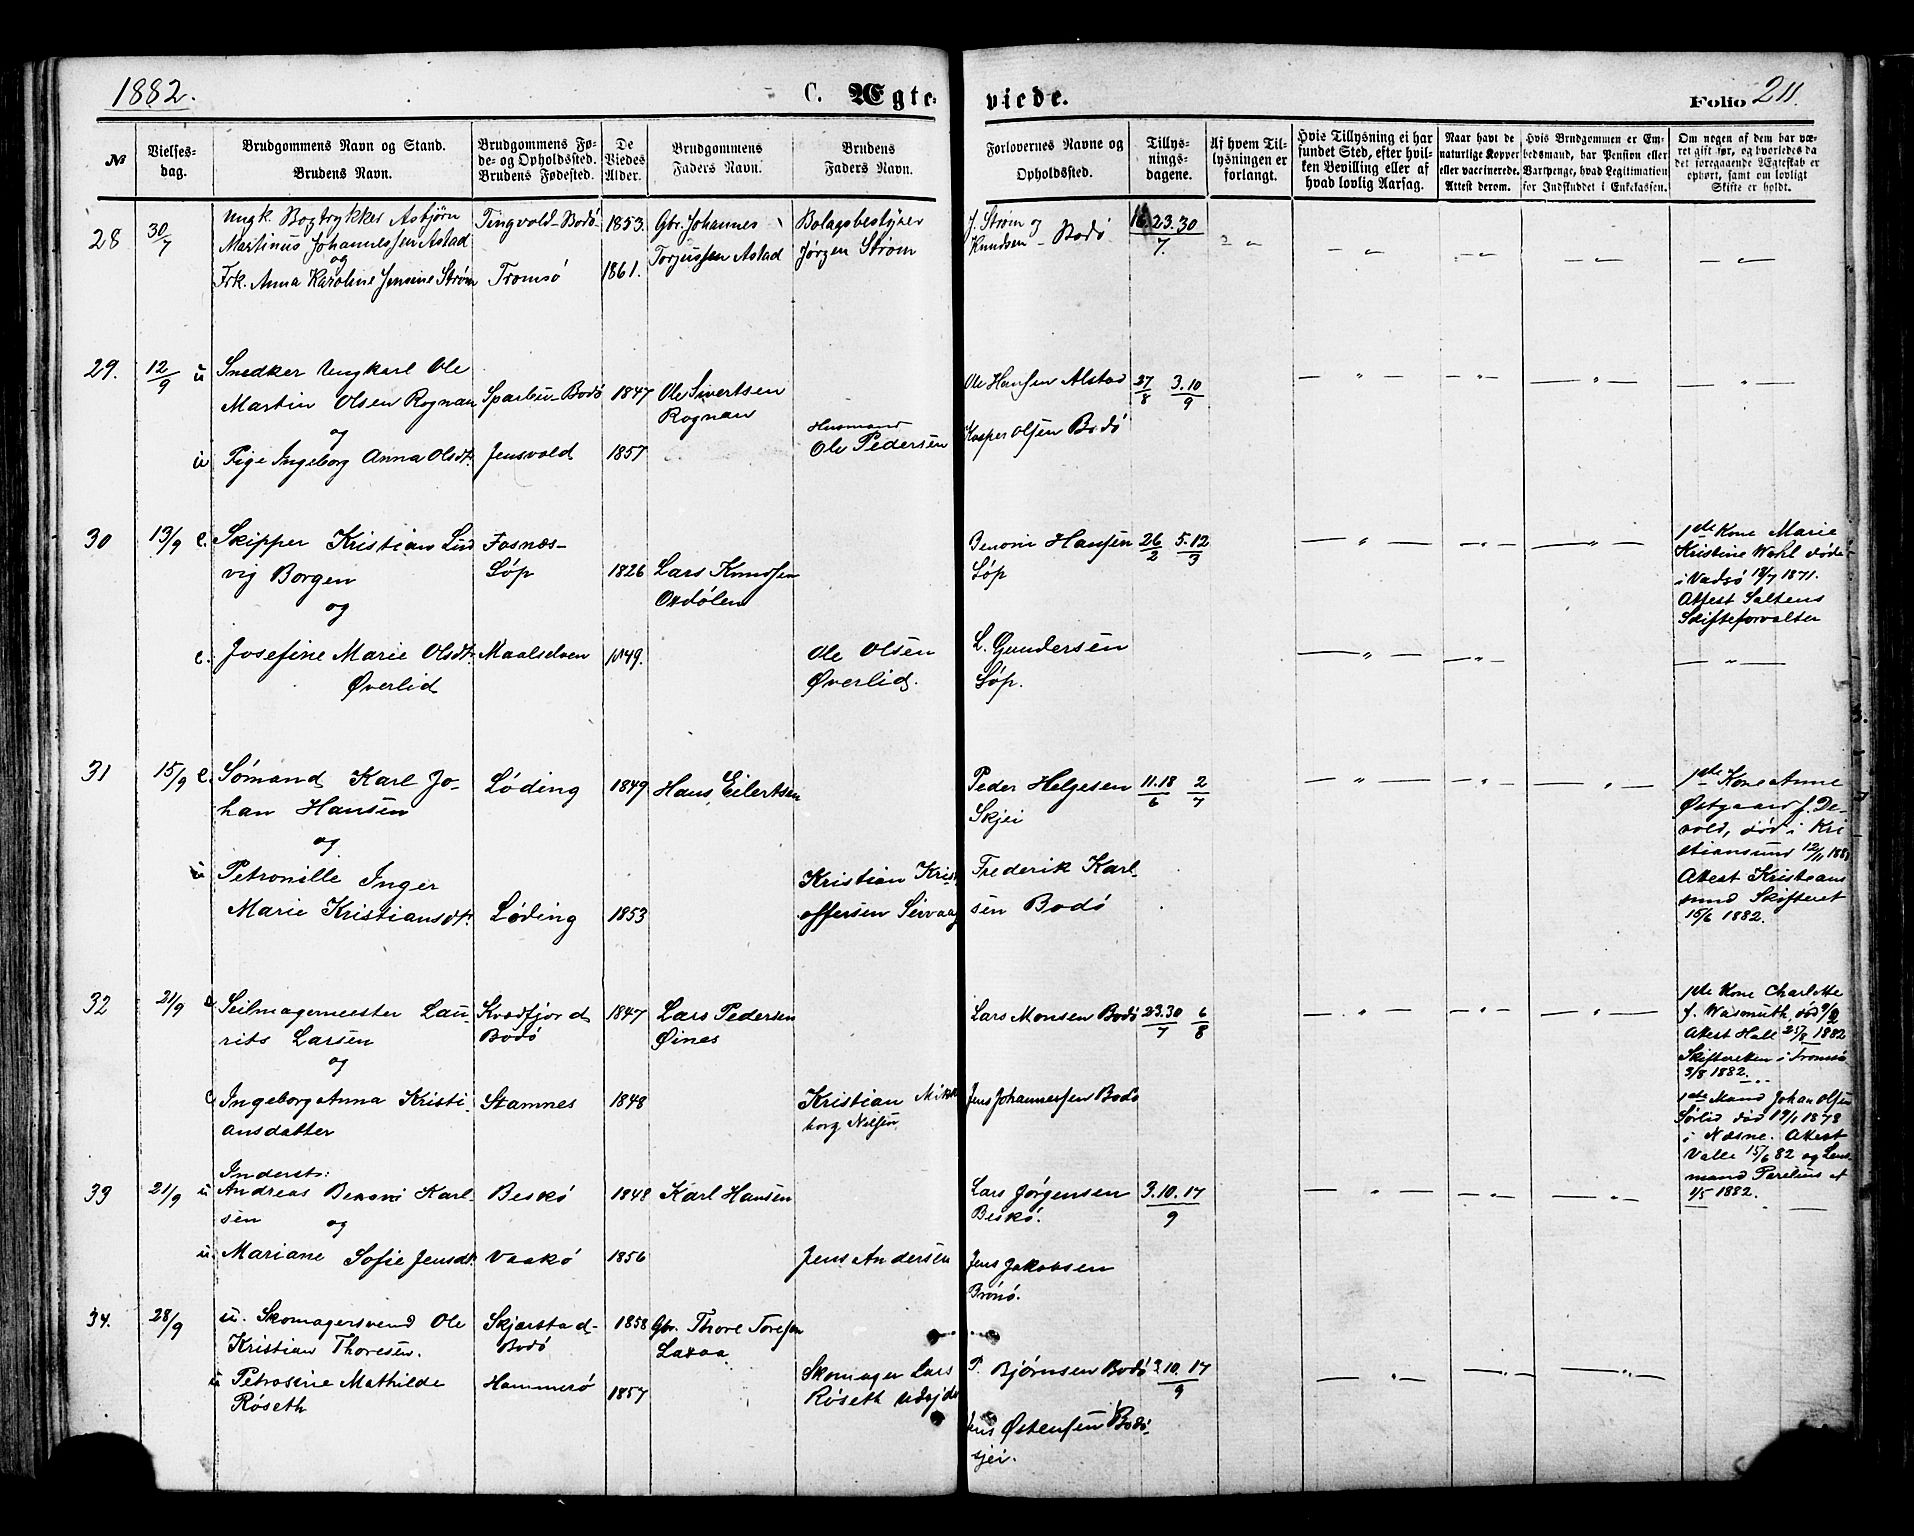 1882.
C. Ægte-
viede.
Folio 211.
No
Vielses-
dag.
Brudgommens Navn og Stand.
Brudens Navn.
Brudgommens Fø-
de- og Opholdssted.
Brudens Fødested.
De
Viedes
Alder.
Brudgommens
Faders Navn.
Brudens
Faders Navn.
Forlovernes Navne og
Opholdssted.
Tillys-
nings-
dagene.
Af hvem Til-
lysningen er
forlangt.
Hvis Tillysning ei har
fundet Sted, efter hvil-
ken Bevilling eller af
hvad lovlig Aarsag.
Naar havt de
naturlige Kopper
eller vaccinerede.
Attest derom.
Hvis Brudgommen er Em-
bedsmand, har Pension eller
Vartpenge, hvad Legitimation
for Indskuddet i Enkekassen.
Om nogen af dem har væ-
ret gift før, og hvorledes da
det foregaaende Ægteskab er
ophørt, samt om lovligt
Skifte er holdt.
28
30/7
Ungk Bogtrykker Asbjørn
Martinus Johannessen Astad
og
Frk. Anna Karoline Jensine Strøm
Tingvold-Bodø
Tromsø
1853.
1861.
Gbr. Johannes
Torjussen Astad
Bolagsbestyrer
Jørgen Strøm
J. Strøm og
Knudsen - Bodø
16.23.30
7.
29.
12/9
u
Snedker Ungkarl Ole
Martin Olsen Rognan
og
u
Pige Ingeborg Anna Olsdt.
Sparbu-Bodø
Jensvold
1847
1857
Ole Sivertsen
Rognan
Husmand
Ole Pedersen
Ole Hansen Alstad
Kasper Olsen Bodø
27/8 3.10/9
30
13/9
e.
Skipper Kristian Lud
vig Borgen
og
e.
Josefine Marie Olsdt.
Øverlid
Fosnæs-
Løp
Maalselven
1826
1849.
Lars Knudsen
Oxdølen
Ole Olsen
Øverlid.
Benoni Hansen
Løp
L. Gundersen
Løp.
26/2 5.12/3
1ste Kone Marie
Kristine Wahl død
i Vadsø 18/7 1871.
Attest Saltens
Skifteforvalter
31
15/9
e.
Sømand Karl Jo-
han Hansen
og
u
Petronille Inger
Marie Kristiansdt.
Løding
Løding
1849
1853
Hans Eilertsen
Kristian Krist
offersen Seivaag
Peder Helgesen
Skjei
Frederik Karl
sen Bodø
11.18/6 2/7
1ste Kone Anne
Østgaard f. De-
vold, død i Kri
stiansund 12/11 1881
Attest Kristians
sund Skifteret
15/6 1882.
32
21/9
e
Seilmagermester Lau-
rits Larsen
og
e
Ingeborg Anna Kristi
ansdatter
Kvædfjord
Bodø
Stamnes
1847
1848
Lars Pedersen
Øines
Kristian
borg Nilsen
Lars Monsen Bodø
Jens Johannessen Bodø
23.30/7 6/8
1ste Kone Charlotte
f. Wasmuth, død 9/2
Attest Hall 25/8 1882
Skifteretten i Tromsø
3/8 1882.
1ste Mand Johan Olsen
Sørlid død 19/1 1878
i Næsne. Attest
Valle 15/6 82 og Lens
mand Parelius af
1/5 1882.
33
21/9
u
Inderst:
Andreas Benoni Karl
sen
og
u.
Mariane Sofie Jensdt.
Beskø
Vaakø
1848
1856
Karl Hansen
Jens Andersen
Lars Jørgensen
Beskø.
Jens Jakobsen
Brønø.
3.10.17
9
34.
28/9
u. Skomagersvend Ole
Kristian Thoresen.
u
Petrosine Mathilde
Røseth
Skjærstad-
Bodø
Hammerø
1858
1857
Gbr. Thore Toresen
Laxaa
Skomager Lars
Røseth
P. Bjørnsen Bodø
Jens Østensen Bodø-
sjøi.
3.10.17
9